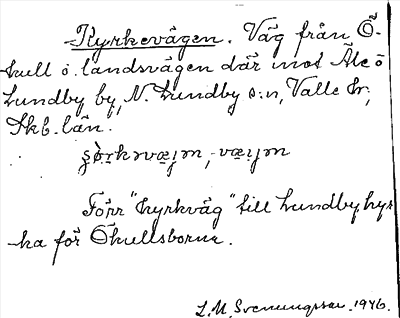 Kyrkevägen. Väg från Ö-
kull o. landsvägen där mot Åle o
Lundby by, N. Lundby s:n, Valle hr,
Skb. län.
Förr "kyrkväg" till Lundby kyr
ka för Ökullsborna.
L.M. Svenungsson. 1946.